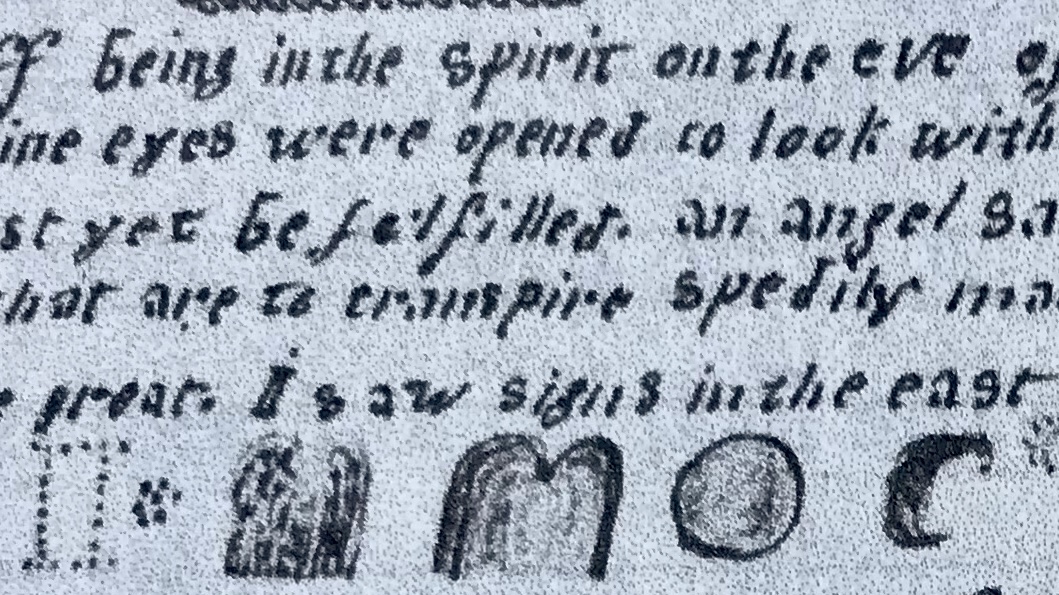 of being in the spirit on the eve of
ine eyes were opened to look with
st yet be felfilled. an angel sa
hat are to transpire spedily ma
great. I saw signs in the east